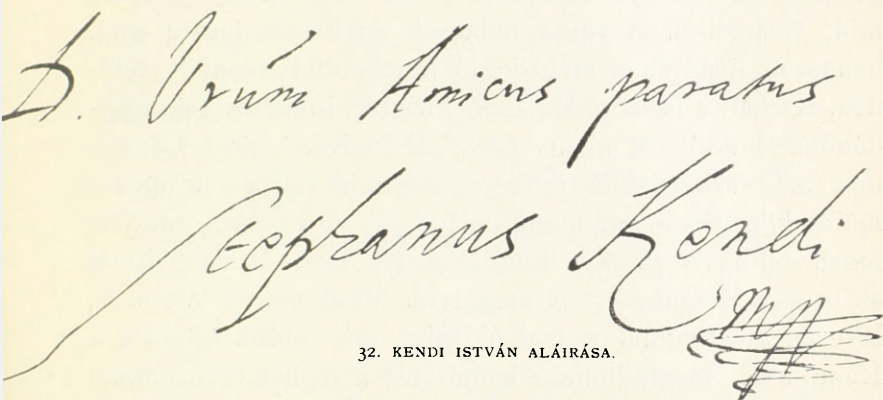 D. Vrúm Amicus paratus
Stephanus Kendi
32. KENDI ISTVÁN ALÁIRÁSA.